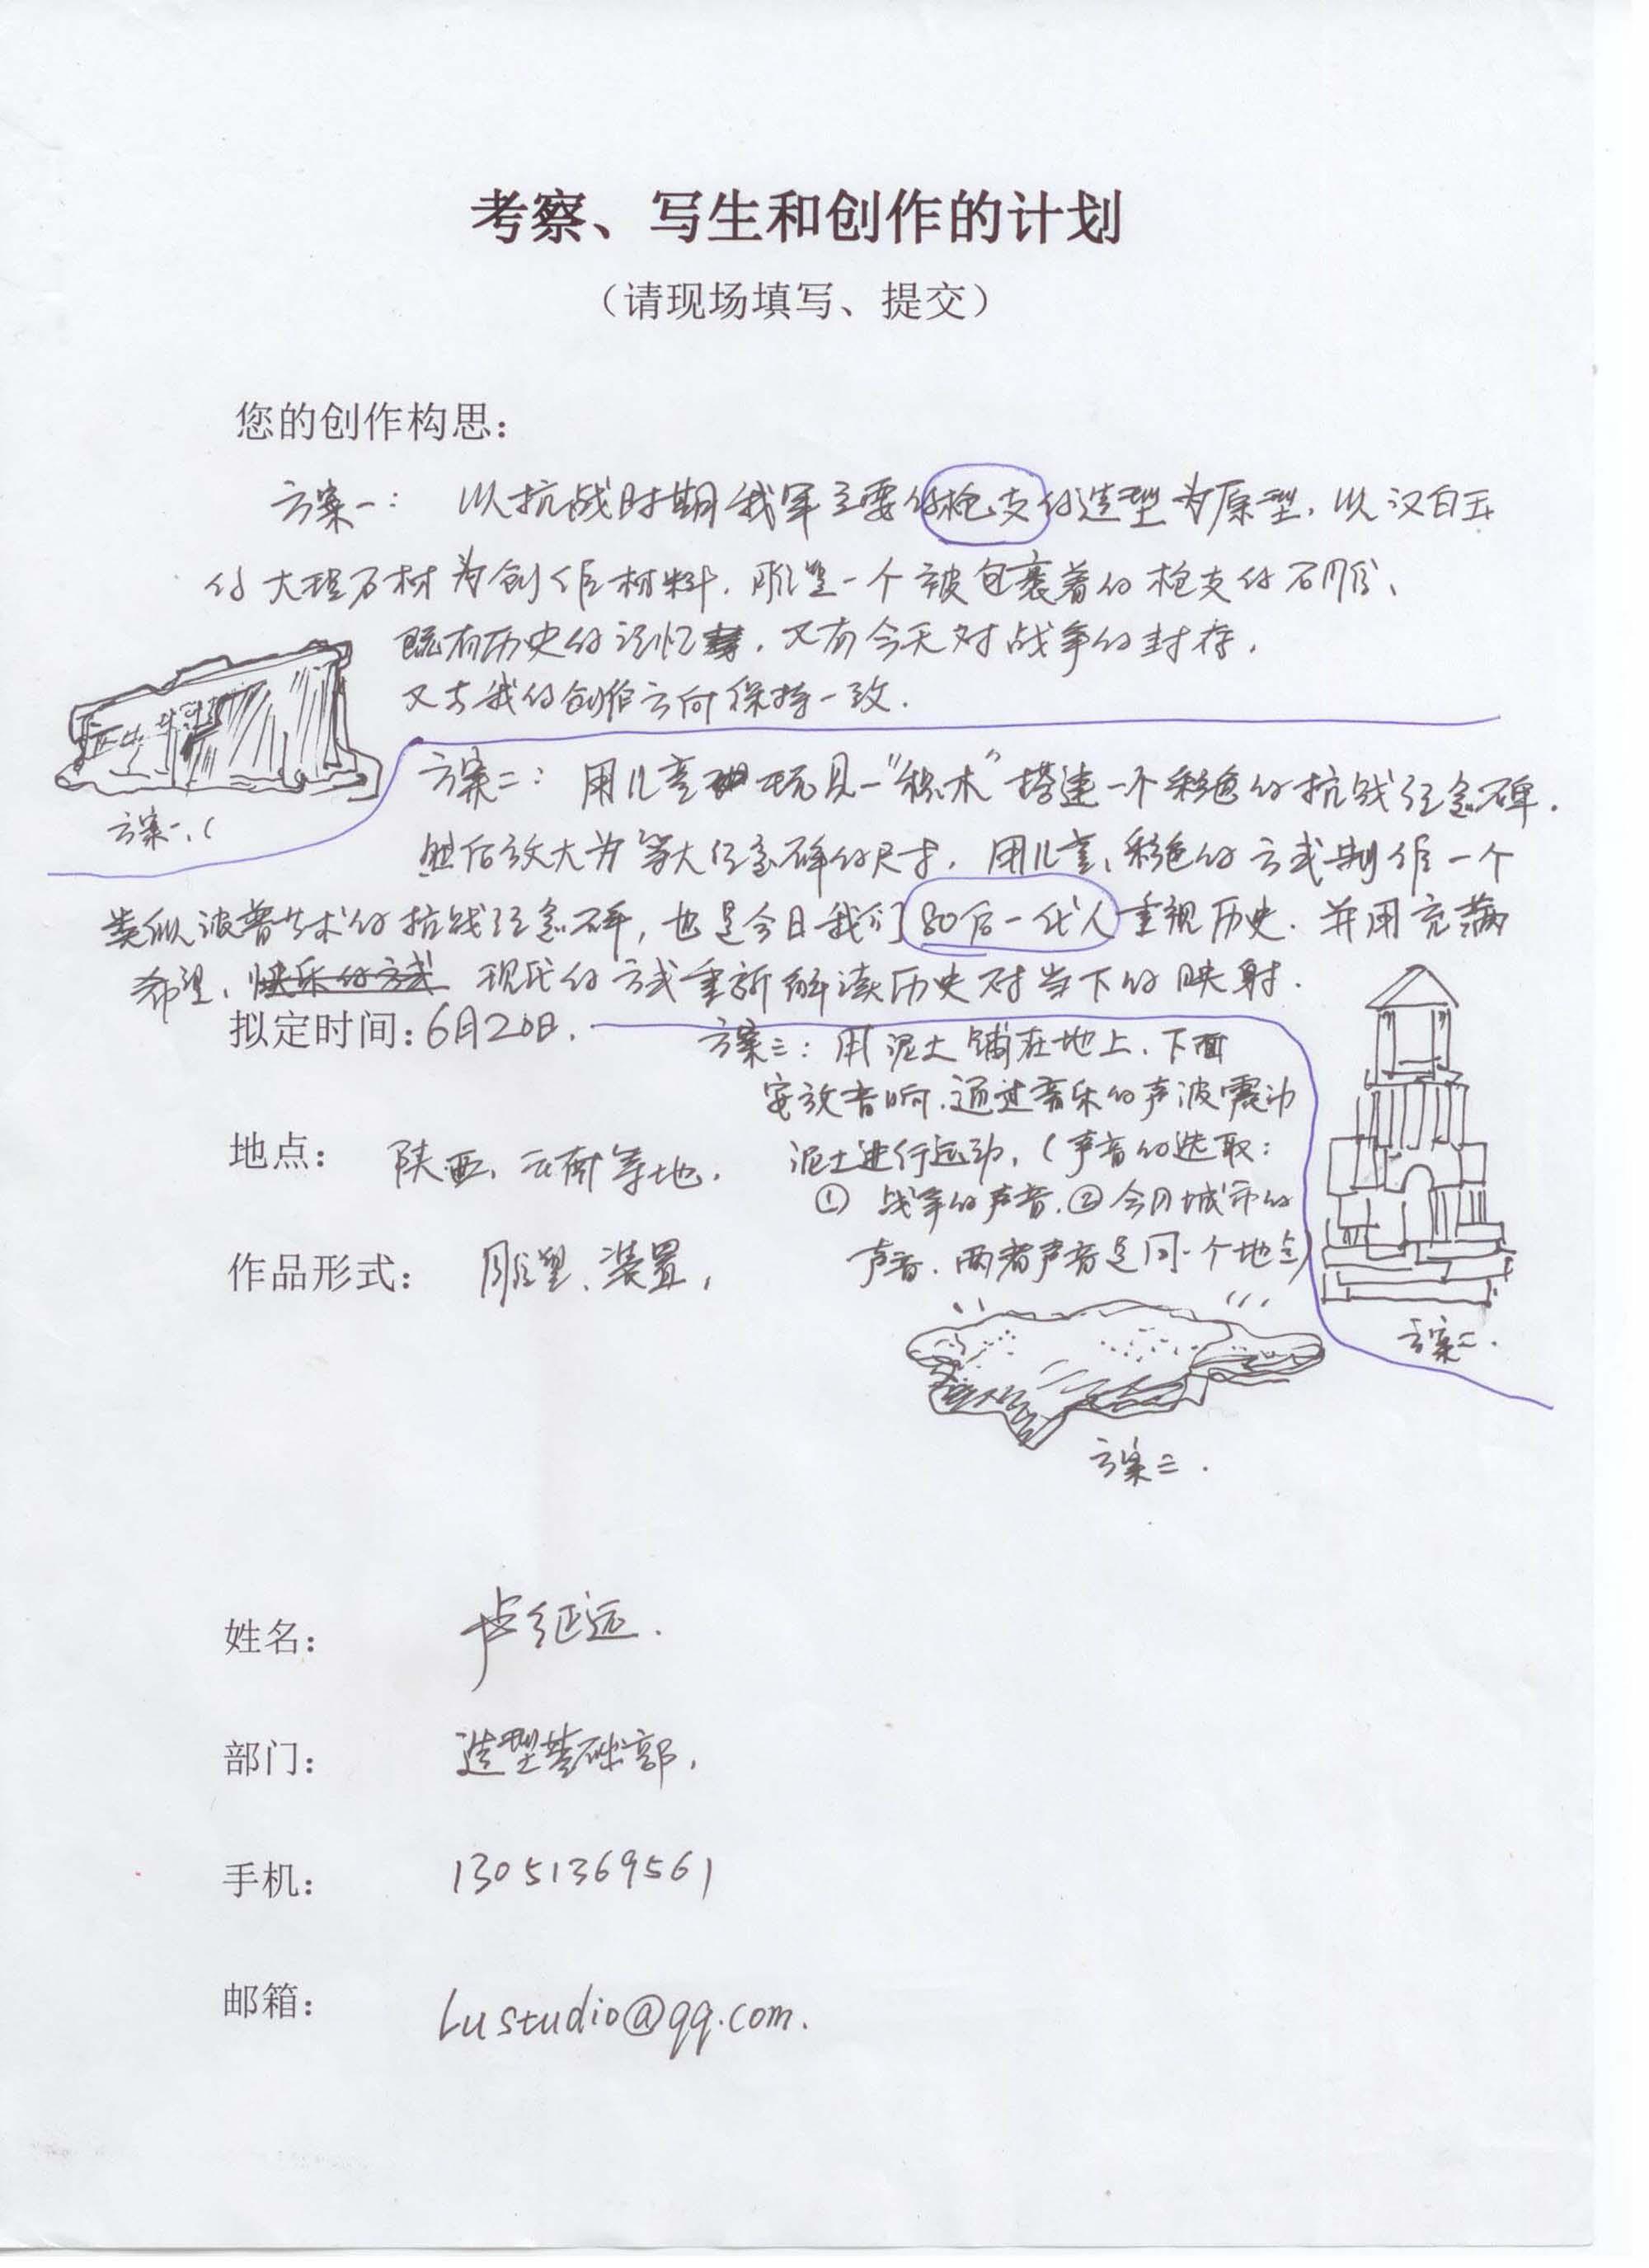 考察、写生和创作的计划
（请现场填写、提交）
您的创作构思：
方案一： 以抗战时期我军主要的枪支的造型为原型，以汉白玉
的大理石材为创作材料，雕塑一个被包裹着的枪支的石雕、
既有历史的记忆，又有今天对战争的封存，
又与我的创作方向保持一致．
方案一、
方案二：用儿童玩具—“积木”搭建一个彩色的抗战纪念碑．
然后放大为等大纪念碑的尺寸，用儿童、彩色的方式制作一个
类似波普艺术的抗战纪念碑，也是今日我们80后一代人重视历史．并用充满
希望、快乐的方式 现代的方式重新解读历史对当下的映射．
拟定时间：6月20日．
方案三：用泥土铺在地上、下面
安放音响．通过音乐的声波震动
泥土进行运动，（声音的选取：
① 战争的声音．② 今日城市的
声音．两者声音是同一个地点）
地点： 陕西、云南等地．
作品形式： 雕塑、装置，
方案二．
方案三．
姓名： 卢征远．
部门： 造型基础部，
手机： 13051369561
邮箱： Lustudio@qq.com.